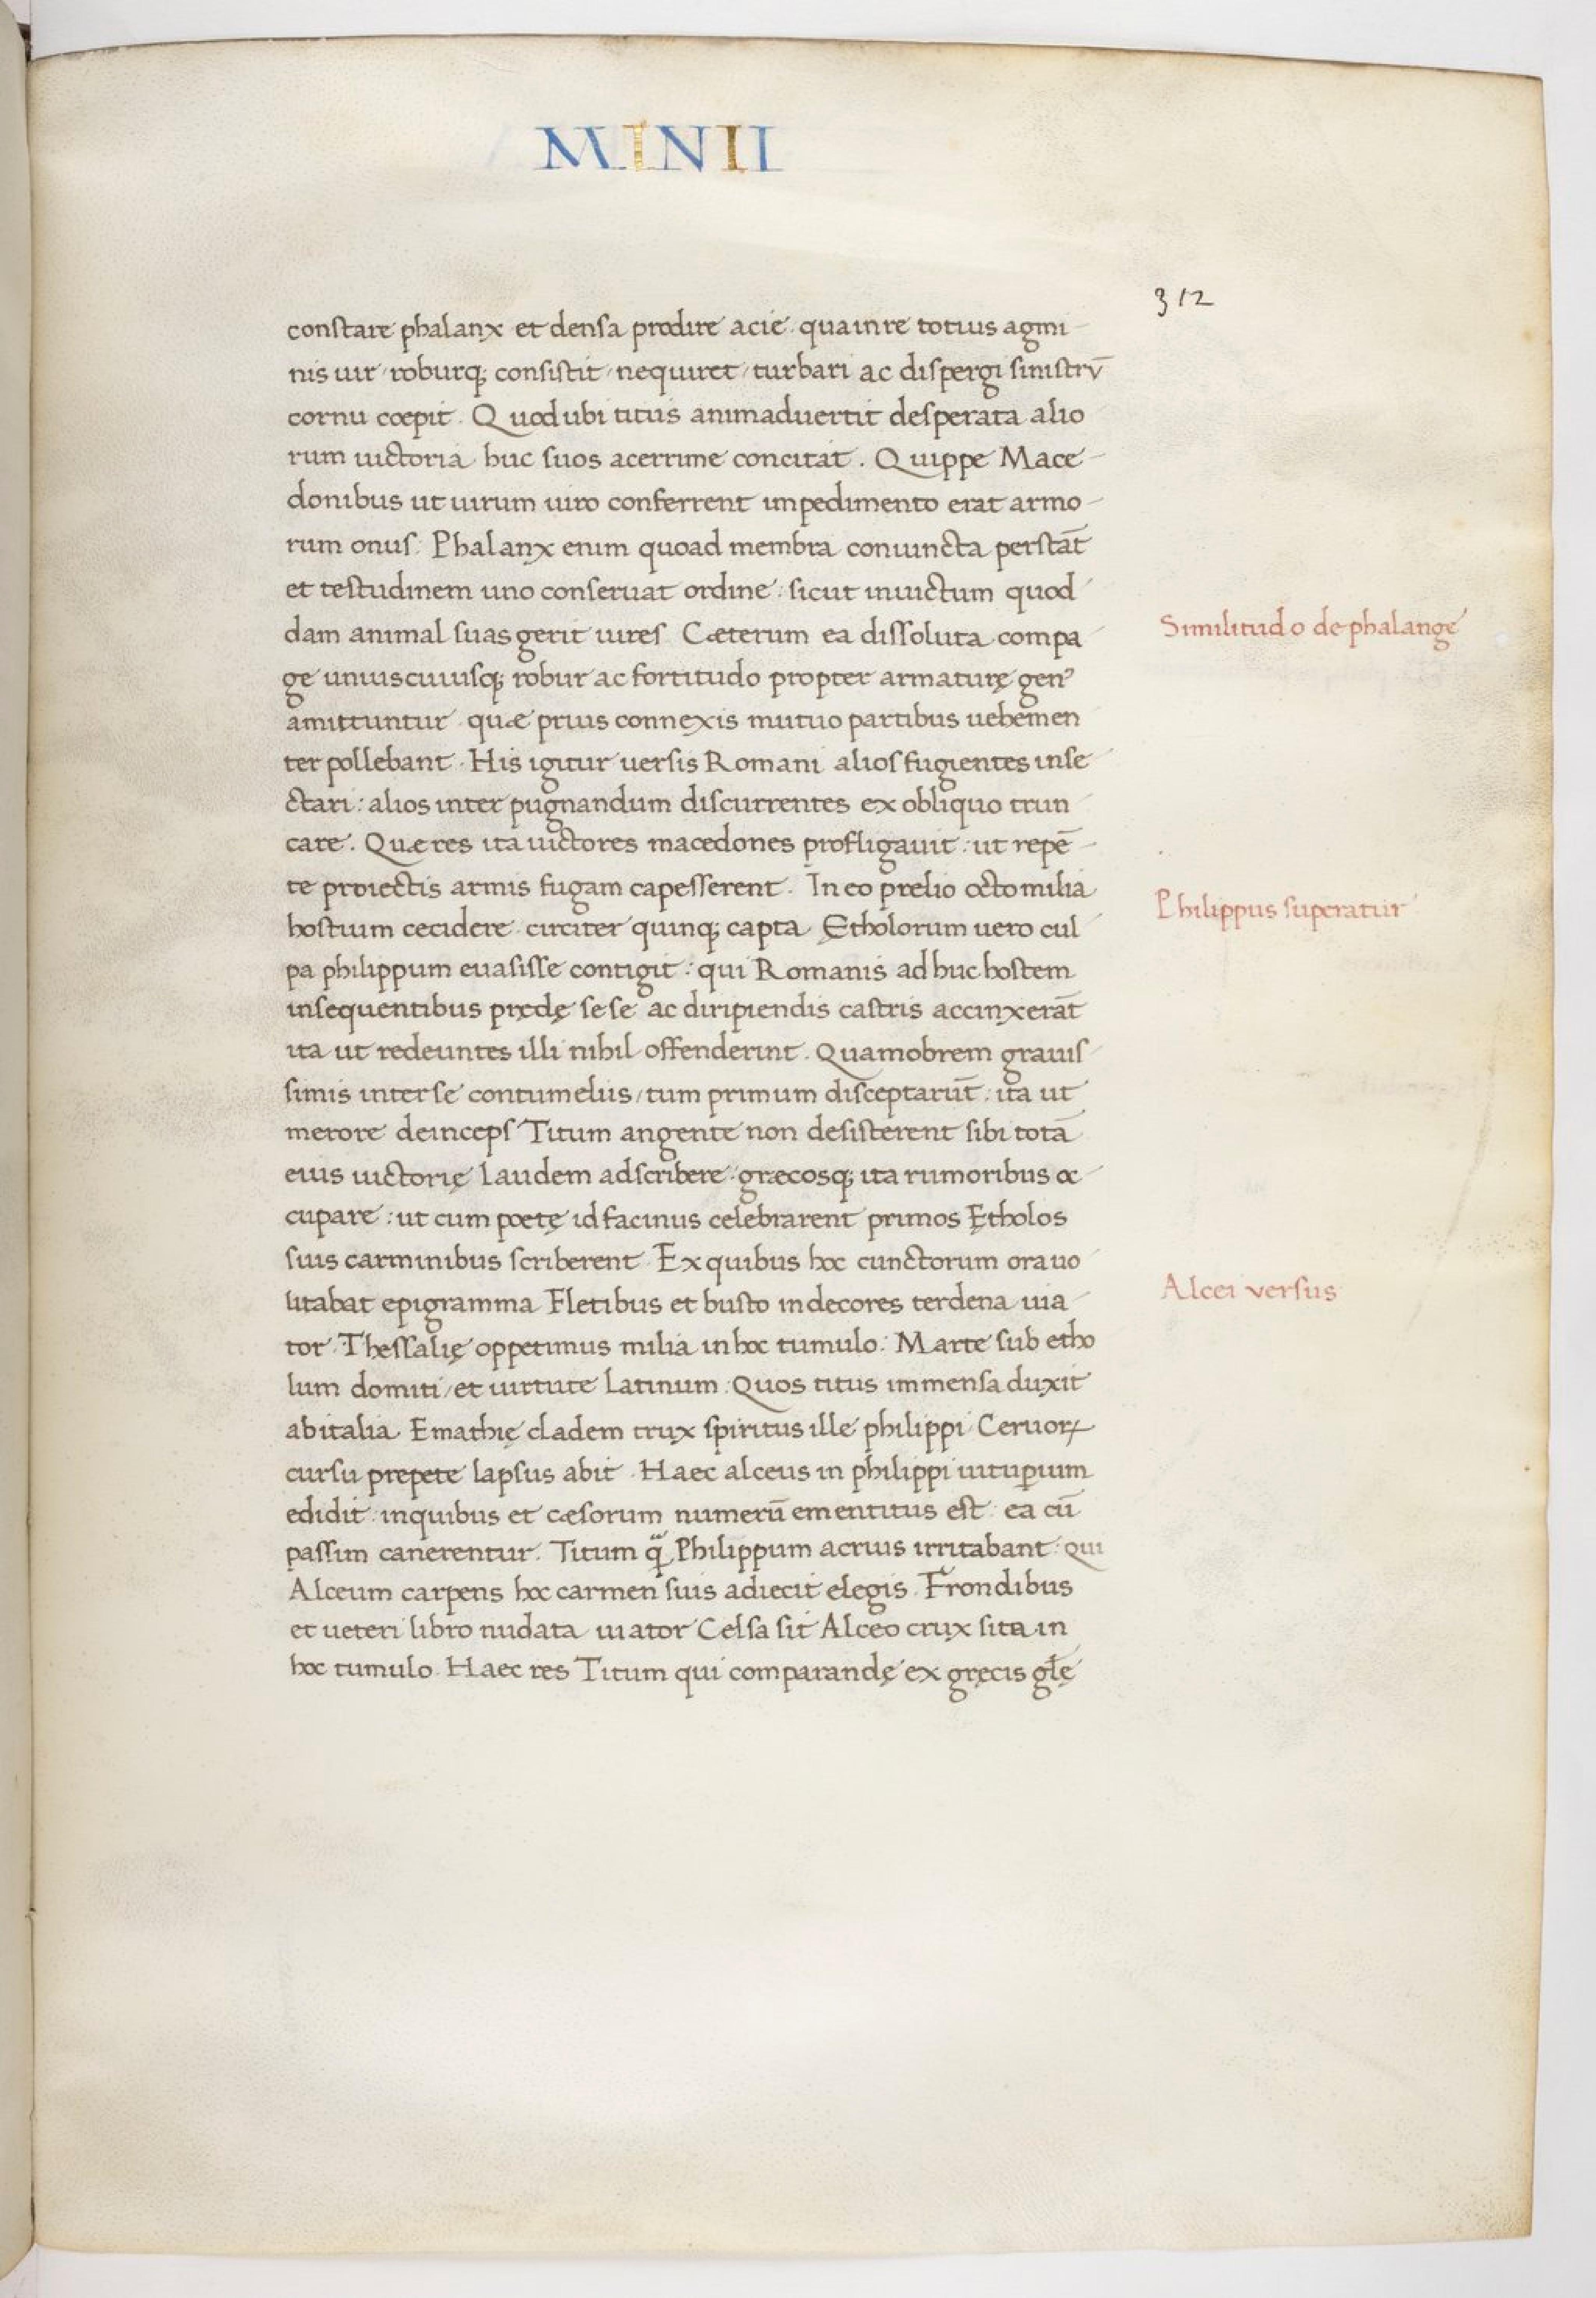 MINII
312
constare phalanx et densa prodire acie quainre totius agmi-
nis uir roburq; consistit nequiret turbari ac dispergi sinistrū
cornu coepit. Quod ubi titus animaduertit desperata alio
rum uictoria huc suos acerrime concitat. Quippe Mace-
donibus ut uirum uiro conferrent impedimento erat armo-
rum onus: Phalanx enim quoad membra coniuncta perstāt
et testudinem uno conseruat ordine: sicut inuictum quod
dam animal suas gerit uires Cæterum ea dissoluta compa
Similitudo de phalange
ge uniuscuiusq; robur ac fortitudo propter armaturę genꝰ
amittuntur quæ prius connexis mutuo partibus uehemen
ter pollebant. His igitur uersis Romani alios fugientes inse-
ctari: alios inter pugnandum discurrentes ex obliquo trun
care. Quæ res ita uictores macedones profligauit: ut repē-
te proiectis armis fugam capesserent. In eo prelio octo milia
Philippus superatur
hostium cecidere circiter quinq; capta Ętholorum uero cul
pa philippum euasisse contigit: qui Romanis ad huc hostem
insequentibus prędę se se ac diripiendis castris accinxerāt
ita ut redeuntes illi nihil offenderint. Quamobrem grauis
simis inter se contumeliis, tum primum disceptarūt: ita ut
merore deinceps Titum angente non desisterent sibi totā
eius uictorię laudem adscribere græcosq; ita rumoribus oc-
cupare: ut cum poetę id facinus celebrarent primos Ętholos
suis carminibus scriberent. Ex quibus hoc cunctorum ora uo
litabat epigramma Fletibus et busto indecores terdena uia
Alcei versus
tor Thessalię oppetimus milia in hoc tumulo: Marte sub etho
lum domiti, et uirtute Latinum: Quos titus immensa duxit
ab italia Emathię cladem trux spiritus ille philippi Ceruoꝝ
cursu prepete lapsus abit. Haec alceus in philippi uituꝑium
edidit: inquibus et cæsorum numerū ementitus est: ea cū
passim canerentur. Titum qᷓ Philippum acrius irritabant: qui
Alceum carpens hoc carmen suis adiecit elegis. Frondibus
et ueteri libro nudata uiator Celsa sit Alceo crux sita in
hoc tumulo. Haec res Titum qui comparandę ex gręcis gl̄ę